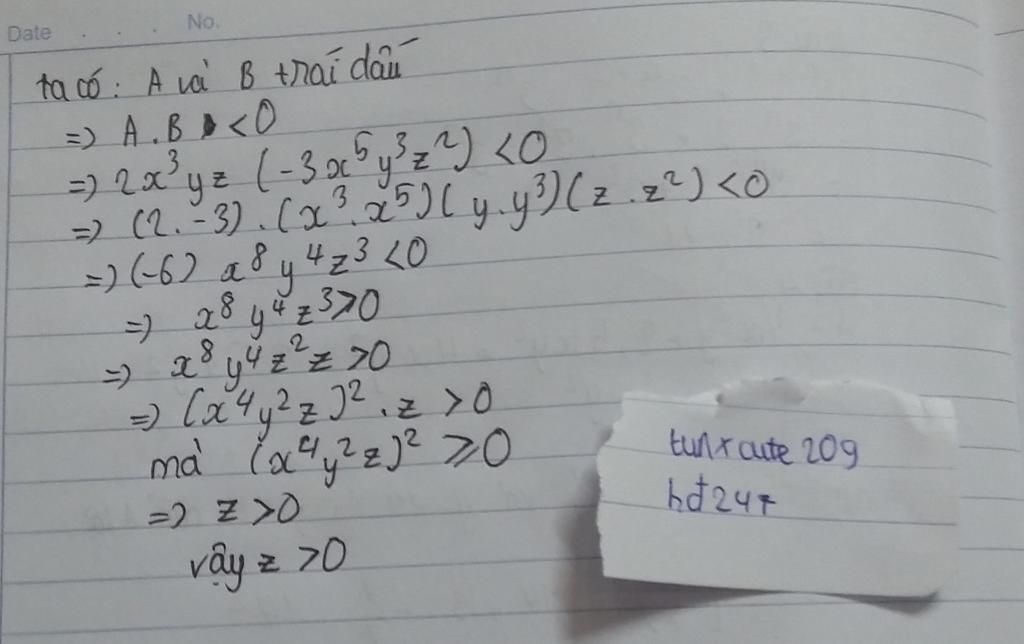 Date . . . No.
ta có: A và B trái dấu
=> A.B <0
=> 2x³yz (-3x⁵y³z²) <0
=> (2.-3).(x³.x⁵)(y.y³)(z.z²) <0
=> (-6) x⁸y⁴z³ <0
=> x⁸y⁴z³>0
=> x⁸y⁴z²z >0
=> (x⁴y²z)².z >0
mà (x⁴y²z)² ≥0
=> z >0
vậy z >0
cute 209
hđ247